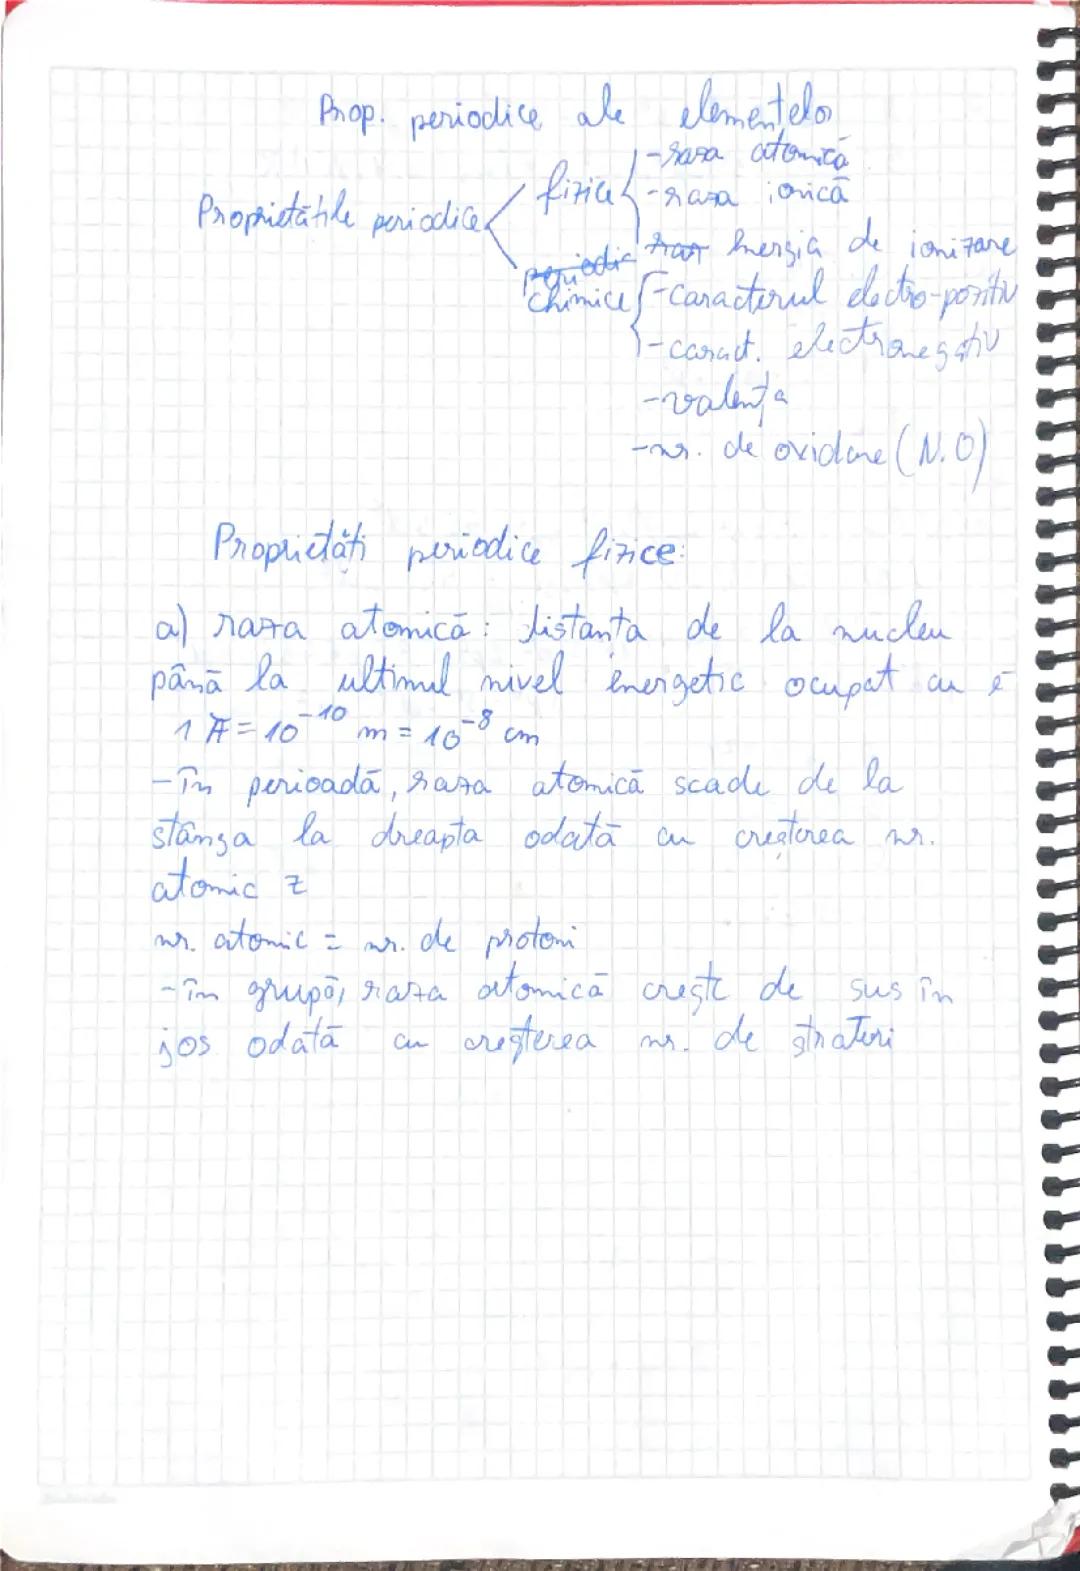 Prop. periodice ale elementelor
Proprietățile periodice
fizice
- raza atomică
- raza ionică
energia de ionizare
chimice
- caracterul electro-pozitiv
- caract. electronegativ
- valența
- nr. de oxidare (N.O)
Proprietăți periodice fizice:
a) raza atomică: distanța de la nucleu
până la ultimul nivel energetic ocupat cu e⁻
1 Å = 10⁻¹⁰ m = 10⁻⁸ cm
- în perioadă, raza atomică scade de la
stânga la dreapta odată cu creșterea nr.
atomic z
nr. atomic = nr. de protoni
- în grupă, raza atomică crește de sus în
jos odată cu creșterea nr. de straturi